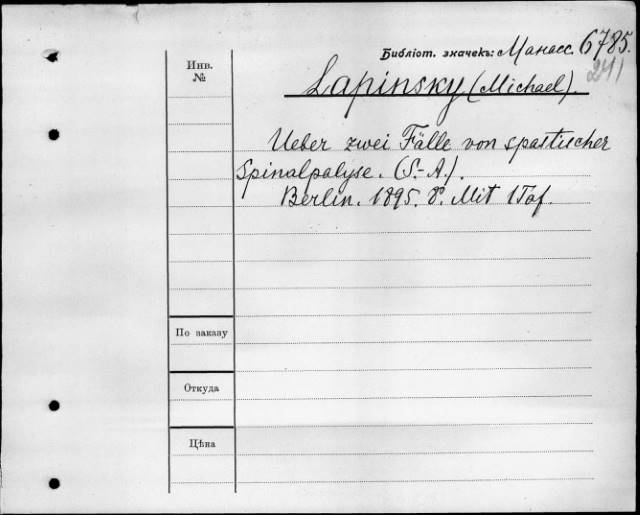 Библiот. значекъ: Манасс. 6785.
241
Инв.
№
Lapinsky (Michael).
Ueber zwei Fälle von spastischer
Spinalpalyse. (S.-A.).
Berlin. 1895. 8°. Mit 1 Taf.
По заказу
Откуда
Цѣна